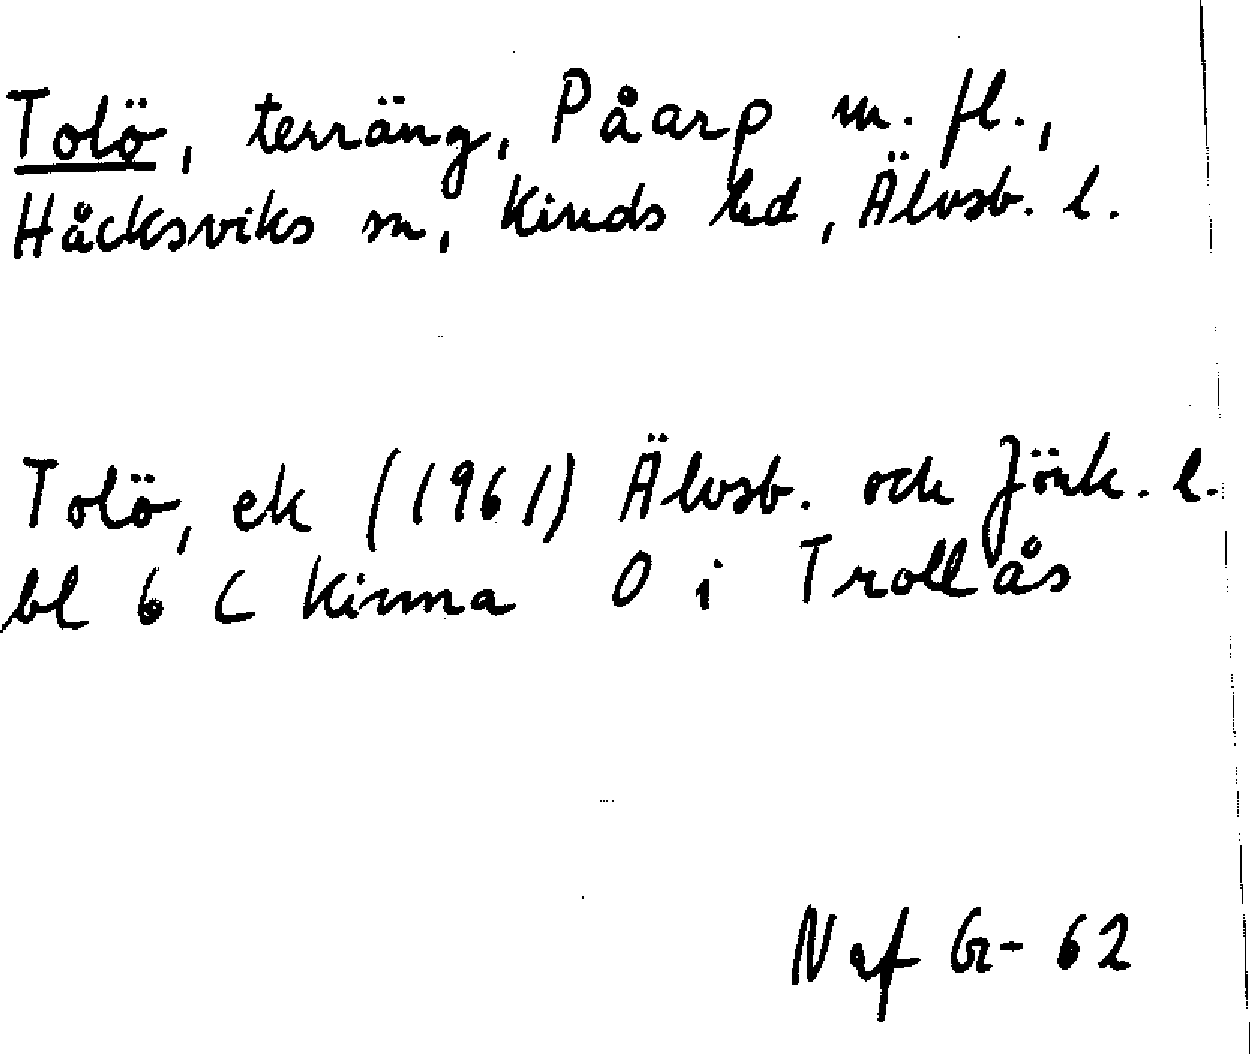 Tolö, terräng, Påarp m. fl.,
Håcksviks sn, Kinds hd, Älvsb. l.
Tolö, ek (1961) Älvsb. och Jönk. l.
bl 6 C Kinna O i Trollås
Naf Gr- 62